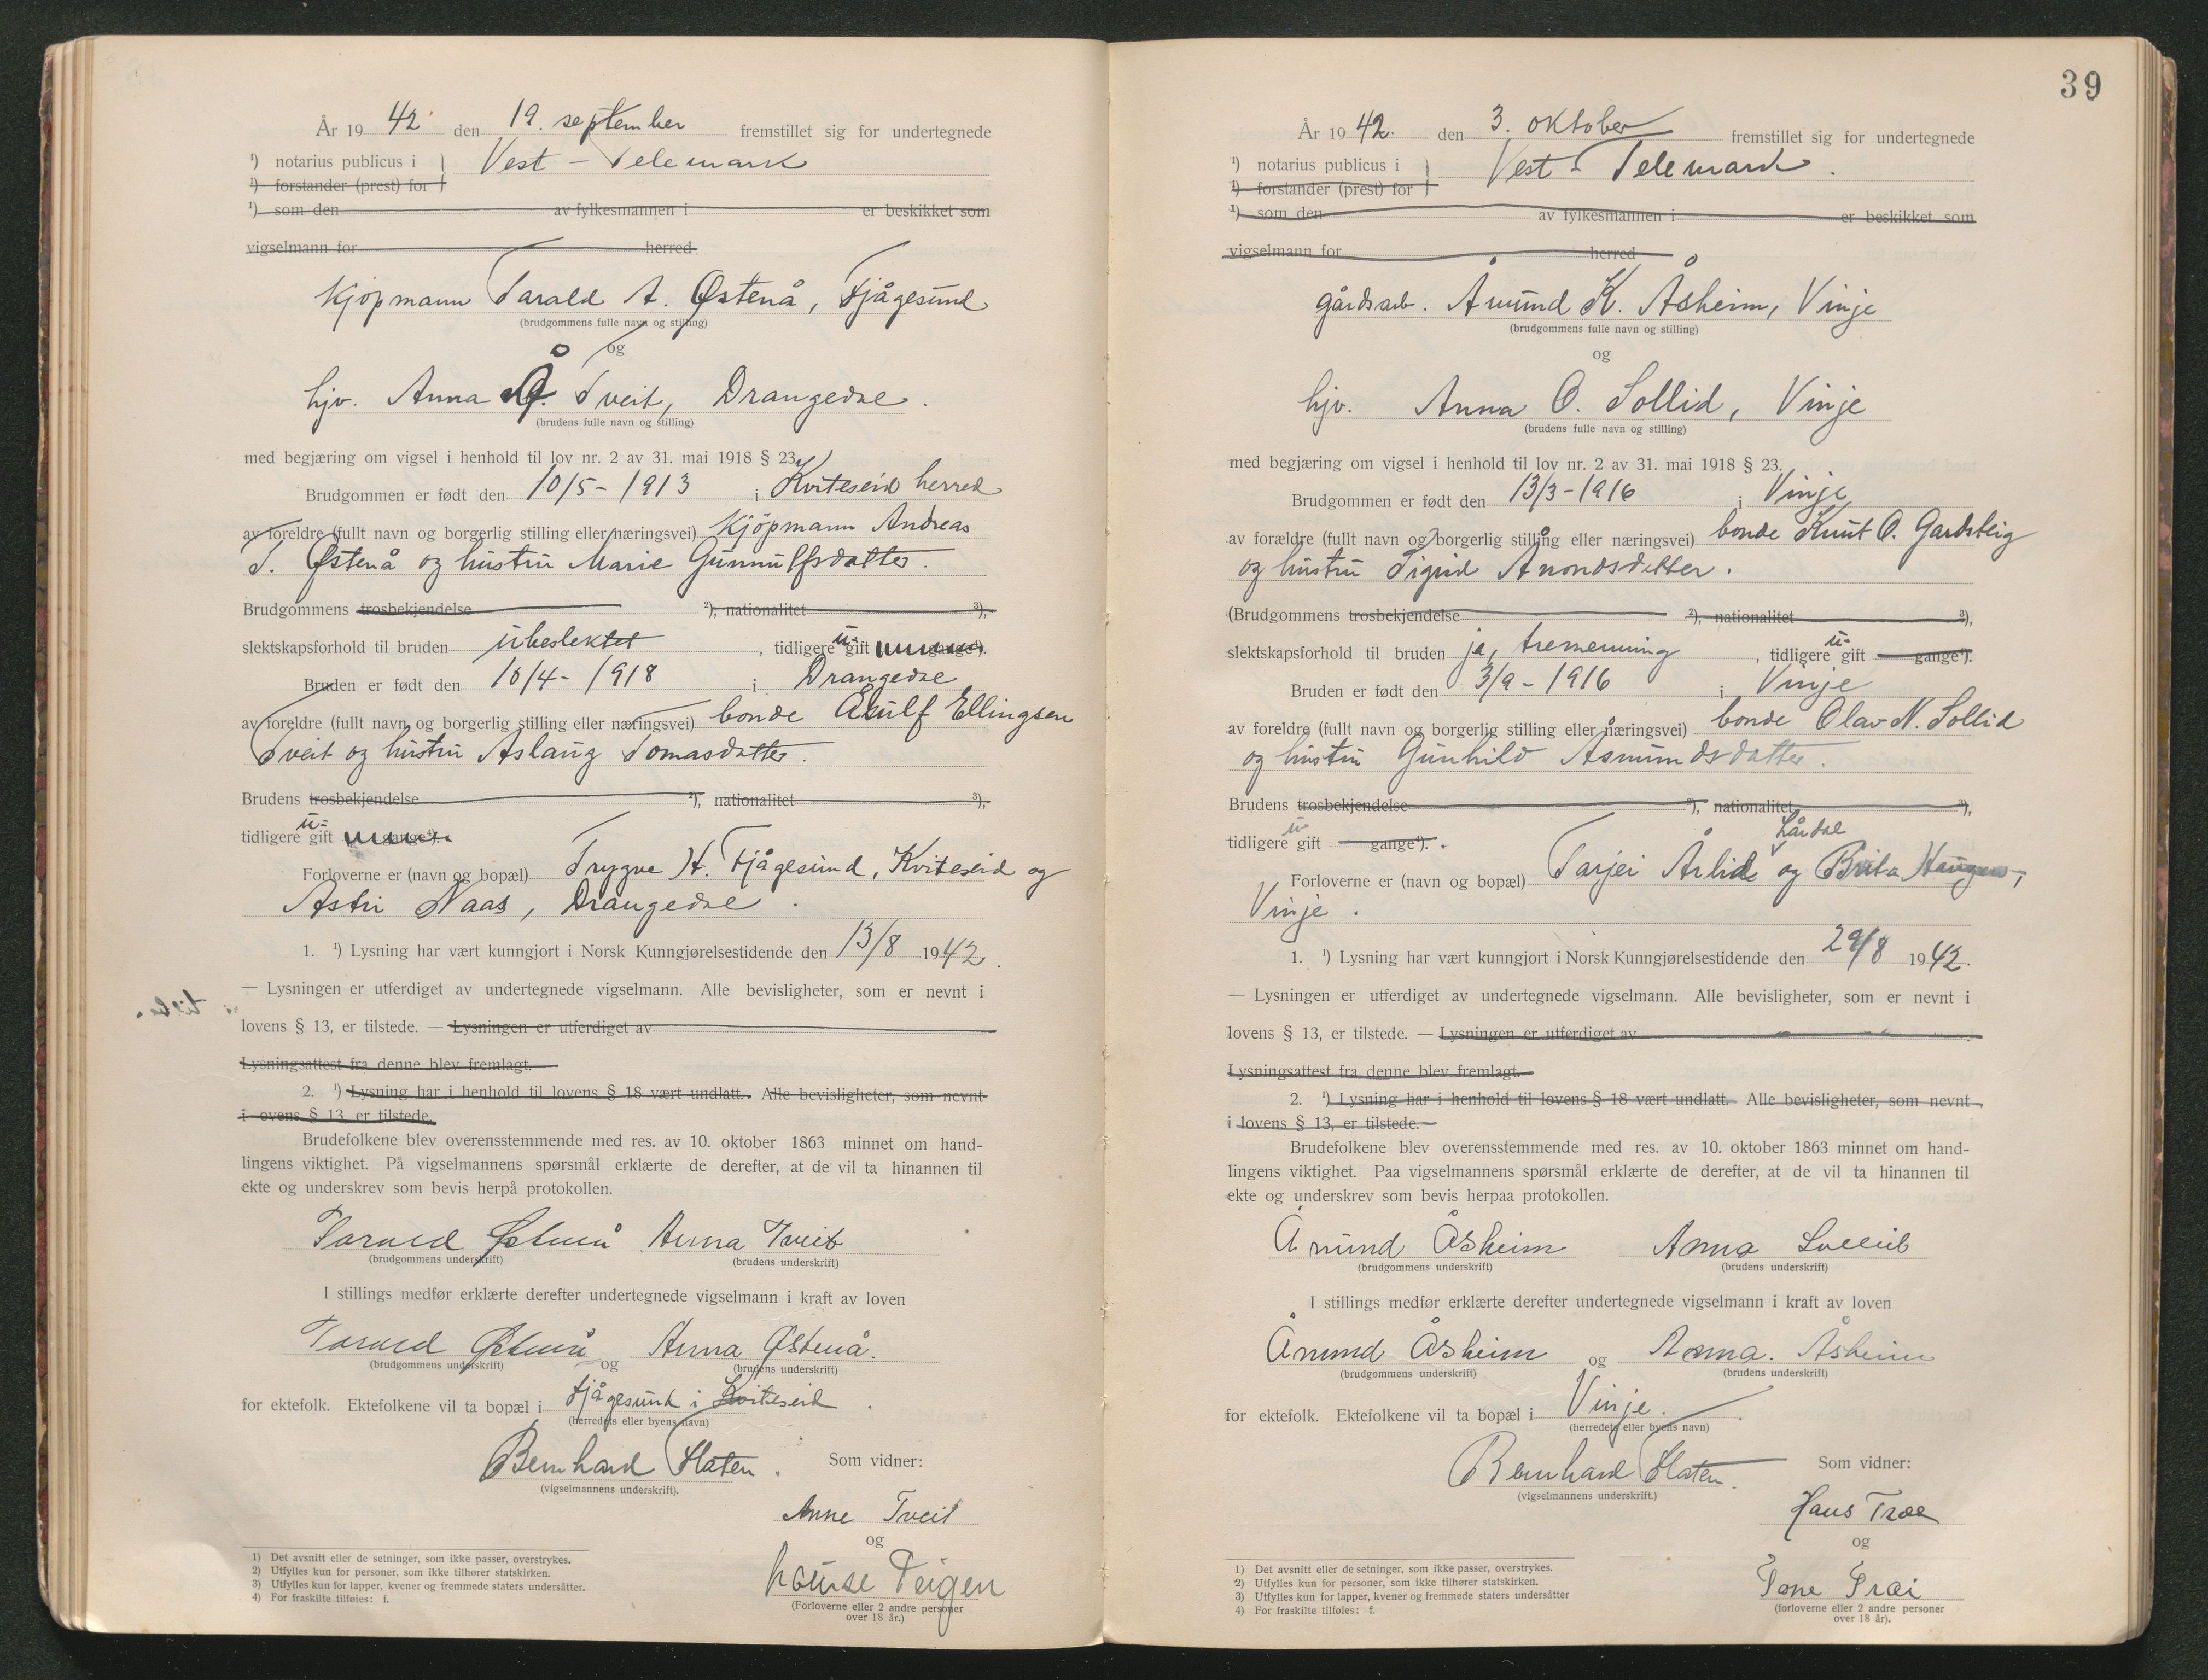 År 1942 den 19. september fremstillet sig for undertegnede
¹) notarius publicus i Vest-Telemark
¹) forstander (prest) for
¹) som den av fylkesmannen i er beskikket som
vigselmann for herred
Kjøpmann Tarald A. Østenå, Fjågesund
(brudgommens fulle navn og stilling)
og
hjv. Anna Å. Tveit, Drangedal.
(brudens fulle navn og stilling)
med begjæring om vigsel i henhold til lov nr. 2 av 31. mai 1918 § 23.
Brudgommen er født den 10/5-1913 i Kviteseid herred
av foreldre (fullt navn og borgerlig stilling eller næringsvei) Kjöpmann Andreas
T. Østenå og hustru Marie Gunnulfsdatter.
Brudgommens trosbekjendelse ²), nationalitet ³),
slektskapsforhold til bruden ubeslektet, tidligere u- gift gange⁴).
Bruden er født den 10/4-1918 i Drangedal
av foreldre (fullt navn og borgerlig stilling eller næringsvei) bonde Ellingsen
Tveit og hustru Aslaug Tomasdatter.
Brudens trosbekjendelse ²), nationalitet ³),
tidligere u- gift gange⁴).
Forloverne er (navn og bopæl) Trygve H. Fjågesund, Kviteseid og
Astri Naas, Drangedal.
1. ¹) Lysning har vært kunngjort i Norsk Kunngjørelsestidende den 13/8 1942.
— Lysningen er utferdiget av undertegnede vigselmann. Alle bevisligheter, som er nevnt i
lovens § 13, er tilstede. — Lysningen er utferdiget av
Lysningsattest fra denne blev fremlagt.
2. ¹) Lysning har i henhold til lovens § 18 vært undlatt. Alle bevisligheter, som nevnt
i ovens § 13 er tilstede.
Brudefolkene blev overensstemmende med res. av 10. oktober 1863 minnet om hand-
lingens viktighet. På vigselmannens spørsmål erklærte de derefter, at de vil ta hinannen til
ekte og underskrev som bevis herpå protokollen.
Tarald Østenå Anna Tveit
(brudgommens underskrift) (brudens underskrift)
I stillings medfør erklærte derefter undertegnede vigselmann i kraft av loven
Tarald Østenå og Anna Østenå.
(brudgommens underskrift) (brudens underskrift)
for ektefolk. Ektefolkene vil ta bopæl i Fjågesund i Kviteseid.
(herredets eller byens navn)
Bernhard Flaten. Som vidner:
(vigselmannens underskrift).
Anne Tveit
og
Louise Teigen
(Forloverne eller 2 andre personer
over 18 år.)
1) Det avsnitt eller de setninger, som ikke passer, overstrykes.
2) Utfylles kun for personer, som ikke tilhører statskirken.
3) Utfylles kun for lapper, kvener og fremmede staters undersåtter.
4) For fraskilte tilføies: f.
39
År 1942. den 3. oktober fremstillet sig for undertegnede
¹) notarius publicus i Vest-Telemark.
¹) forstander (prest) for
¹) som den av fylkesmannen i er beskikket som
vigselmann for herred
gårdsarb. Ånund K. Åsheim, Vinje
(brudgommens fulle navn og stilling)
og
hjv. Anna O. Sollid, Vinje
(brudens fulle navn og stilling)
med begjæring om vigsel i henhold til lov nr. 2 av 31. mai 1918 § 23.
Brudgommen er født den 13/3-1916 i Vinje
av forældre (fullt navn og borgerlig stilling eller næringsvei) bonde Knut O. Gardsteig
og hustru Sigrid Ånondsdatter.
(Brudgommens trosbekjendelse ²), nationalitet ³),
slektskapsforhold til bruden ja, tremenning, tidligere u- gift gange⁴).
Bruden er født den 3/9-1916 i Vinje
av foreldre (fullt navn og borgerlig stilling eller næringsvei) bonde Olav N. Sollid
og hustru Gunhild Asmundsdatter.
Brudens trosbekjendelse ²), nationalitet ³),
tidligere u- gift gange⁴).
Lårdal
Forloverne er (navn og bopæl) Tarjei Århid og Brita Haugen,
Vinje.
1. ¹) Lysning har vært kunngjort i Norsk Kunngjørelsestidende den 29/8 1942.
— Lysningen er utferdiget av undertegnede vigselmann. Alle bevisligheter, som er nevnt i
lovens § 13, er tilstede. — Lysningen er utferdiget av
Lysningsattest fra denne blev fremlagt.
2. ¹) Lysning har i henhold til lovens § 18 vært undlatt. Alle bevisligheter, som nevnt
i lovens § 13, er tilstede.
Brudefolkene blev overensstemmende med res. av 10. oktober 1863 minnet om hand-
lingens viktighet. Paa vigselmannens spørsmål erklærte de derefter, at de vil ta hinannen til
ekte og underskrev som bevis herpaa protokollen.
Ånund Åsheim Anna Sollid
(brudgommens underskrift) (brudens underskrift)
I stillings medfør erklærte derefter undertegnede vigselmann i kraft av loven
Ånund Åsheim og Anna. Åsheim
(brudgommens underskrift) (brudens underskrift)
for ektefolk. Ektefolkene vil ta bopæl i Vinje.
(herredets eller byens navn)
Bernhard Flaten. Som vidner:
(vigselmannens underskrift.)
Hans Træe
og
Tone Træi
(forloverne eller 2 andre personer
over 18 år).
1) Det avsnitt eller de setninger, som ikke passer, overstrykes.
2) Utfylles kun for personer, som ikke tilhører statskirken.
3) Utfylles kun for lapper, kvener og fremmede staters undersåtter
4) For fraskilte tilføies: f.